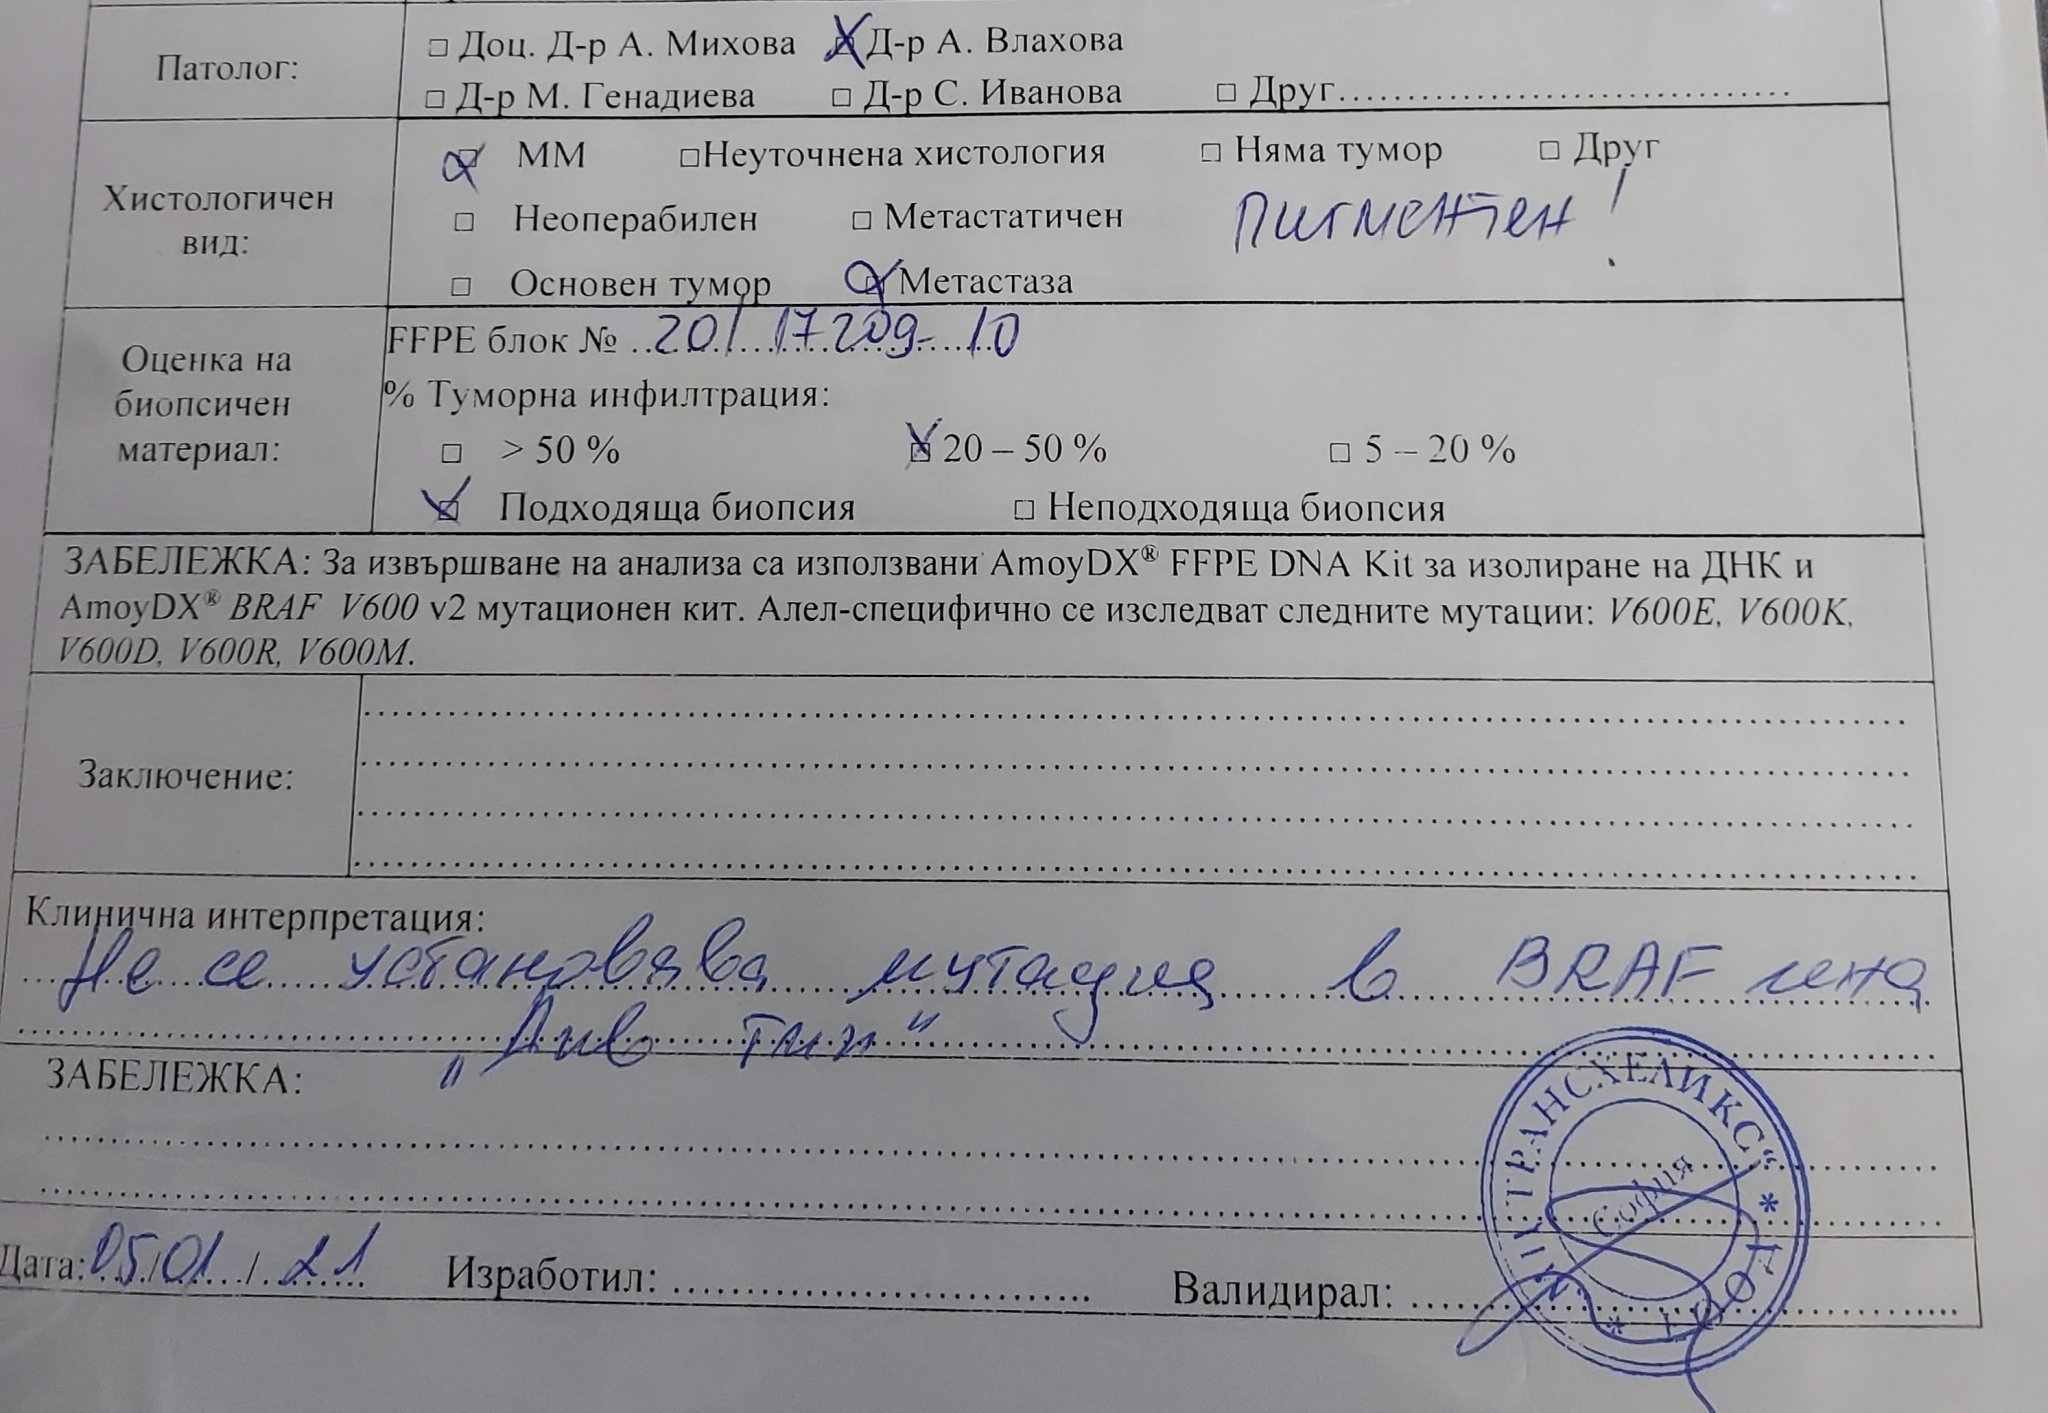 Патолог:
□ Доц. Д-р А. Михова □ Д-р А. Влахова
□ Д-р М. Генадиева □ Д-р С. Иванова □ Друг..............................
Хистологичен вид:
□ ММ □Неуточнена хистология □ Няма тумор □ Друг
□ Неоперабилен □ Метастатичен Пигментен!
□ Основен тумор □ Метастаза
Оценка на биопсичен материал:
FFPE блок № 20/17209-10
% Туморна инфилтрация:
□ > 50 % □ 20 – 50 % □ 5 – 20 %
□ Подходяща биопсия □ Неподходяща биопсия
ЗАБЕЛЕЖКА: За извършване на анализа са използвани AmoyDX® FFPE DNA Kit за изолиране на ДНК и
AmoyDX® BRAF V600 v2 мутационен кит. Алел-специфично се изследват следните мутации: V600E, V600K,
V600D, V600R, V600M.
Заключение:
Клинична интерпретация:
Не се установява мутация в BRAF гена
„Див тип“
ЗАБЕЛЕЖКА:
Дата: 05/01/21 Изработил: .............................. Валидирал: ..............................
ТРАНСХЕЛИКС“ *
София